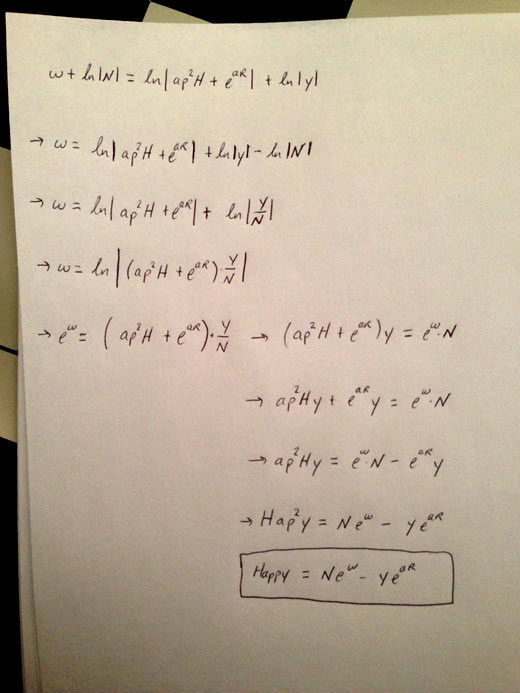 w + ln|N| = ln|ap²H + e^{aR}| + ln|y|
→ w = ln|ap²H + e^{aR}| + ln|y| - ln|N|
→ w = ln|ap²H + e^{aR}| + ln|y/N|
→ w = ln|(ap²H + e^{aR})·y/N|
→ e^w = (ap²H + e^{aR})·y/N → (ap²H + e^{aR})y = e^w·N
→ ap²Hy + e^{aR}y = e^w·N
→ ap²Hy = e^w·N - e^{aR}y
→ Hap²y = Ne^w - ye^{aR}
Happy = Ne^w - ye^{aR}